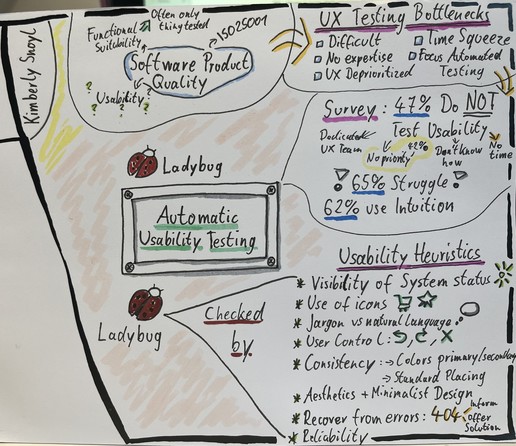 Kimberly Snoyl
Functional
Suitability
Often only
thing tested
ISO25001
Software Product
Quality
? Usability ?
UX Testing Bottlenecks
Difficult
No expertise
UX Deprioritized
Time Squeeze
Focus Automated
Testing
Survey: 47% Do NOT
Test Usability
Dedicated
UX Team
No priority
42%
Don't know
how
No
time
! 65% Struggle !
62% use Intuition
Ladybug
Automatic
Usability Testing
Ladybug
Checked
by
Usability Heuristics
* Visibility of System status
* Use of icons
* Jargon vs natural language
* User Control:
* Consistency: → Colors primary/secondary
→ Standard Placing
* Aesthetics + Minimalist Design
* Recover from errors: 404
Inform
offer
Solution
* Reliability